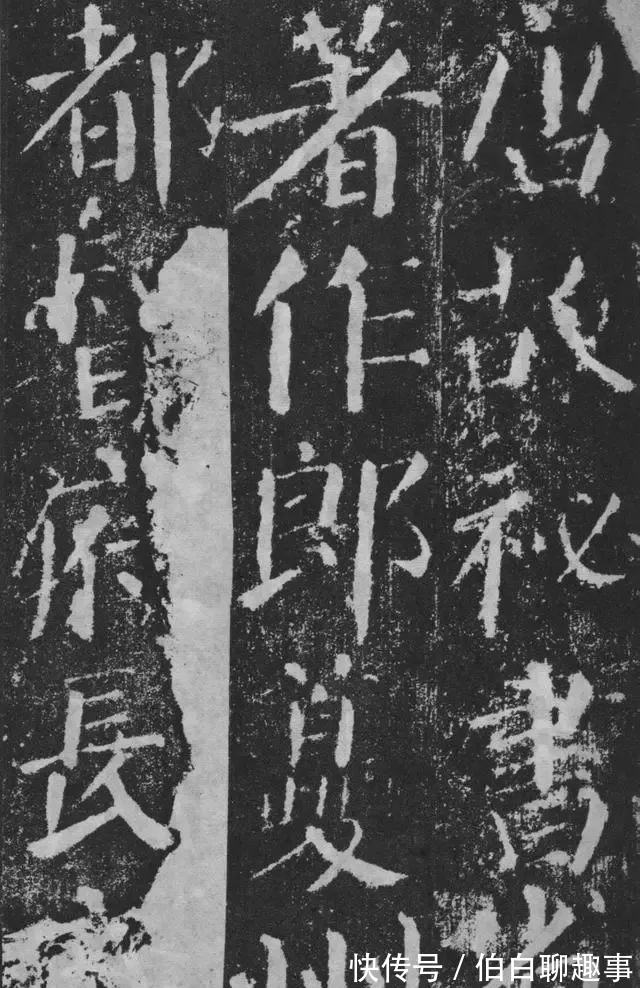 故祕書
著作郎夔
都督府長
快传号 / 伯白聊趣事